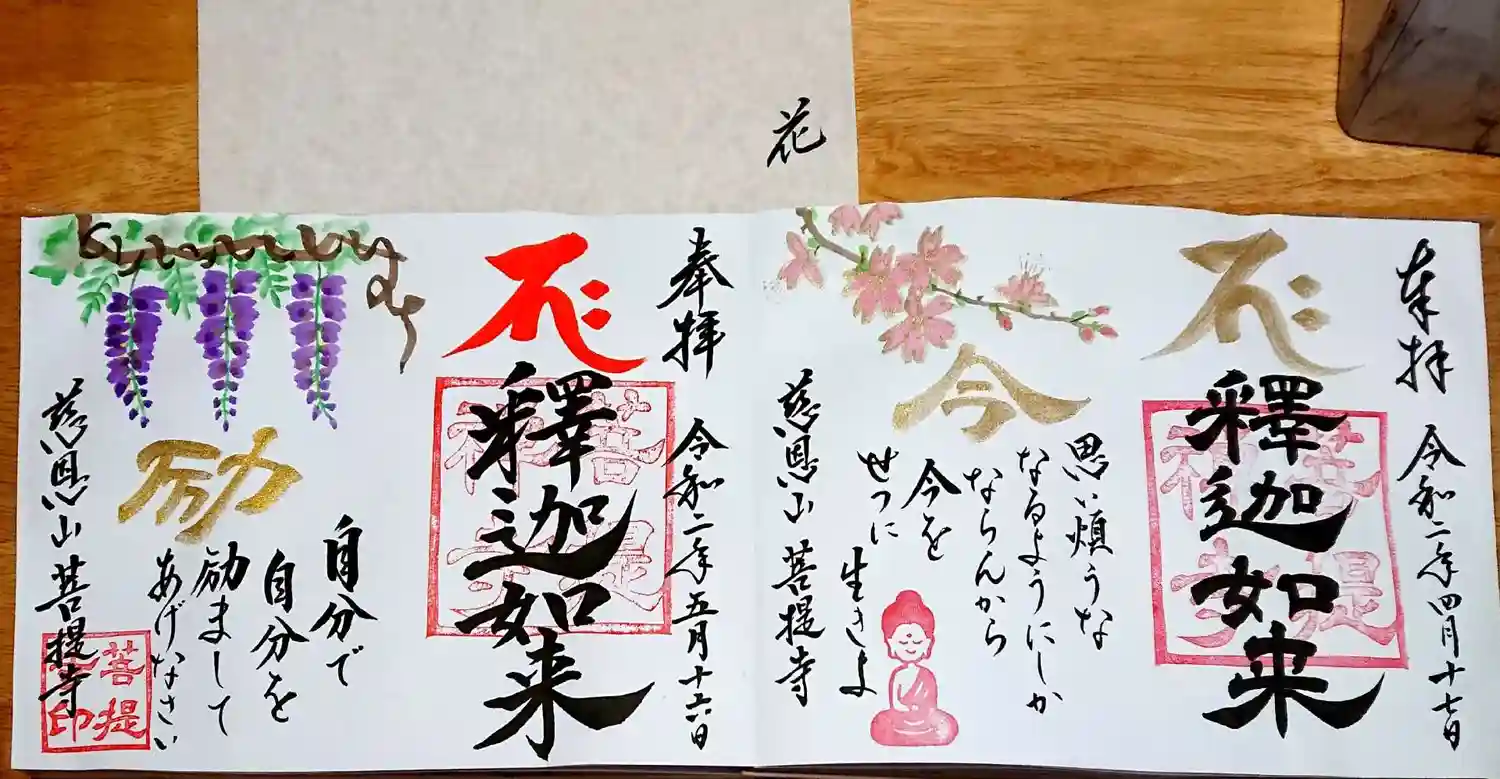 花
奉拝 令和二年四月十七日
釋迦如来
今
思い煩うな
なるようにしか
ならんから
今を
せつに
生きよ
慈恩山 菩提寺
奉拝 令和二年五月十六日
釋迦如来
励
自分で
自分を
励まして
あげなさい
慈恩山 菩提寺
菩提
寺印